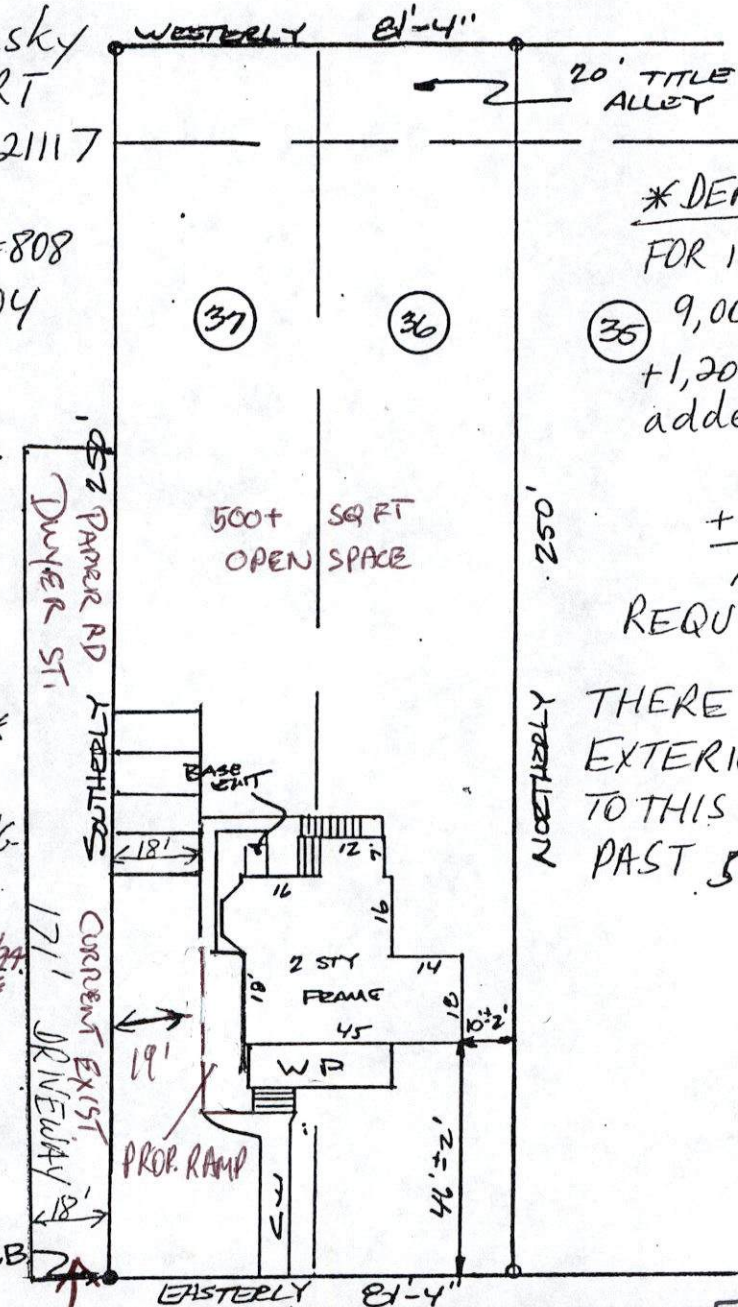 sky
RT
21117
808
04
WESTERLY 81'-4"
20' TITLE
ALLEY
* DE
FOR 1
9,00
+1,20
adde
+
REQU
THERE
EXTERI
TO THIS
PAST 5
37
36
35
500+ SQ FT
OPEN SPACE
250'
SOUTHERLY
PAPER RD
DWYER ST.
250'
NORTHERLY
BASE
ENT
18'
12
16
16
2 STY
FRAME
14
18
45
10'±2'
W P
19'
CURRENT EXIST
171' DRIVEWAY
18'
PROP. RAMP
46'±2'
EASTERLY 81'-4"